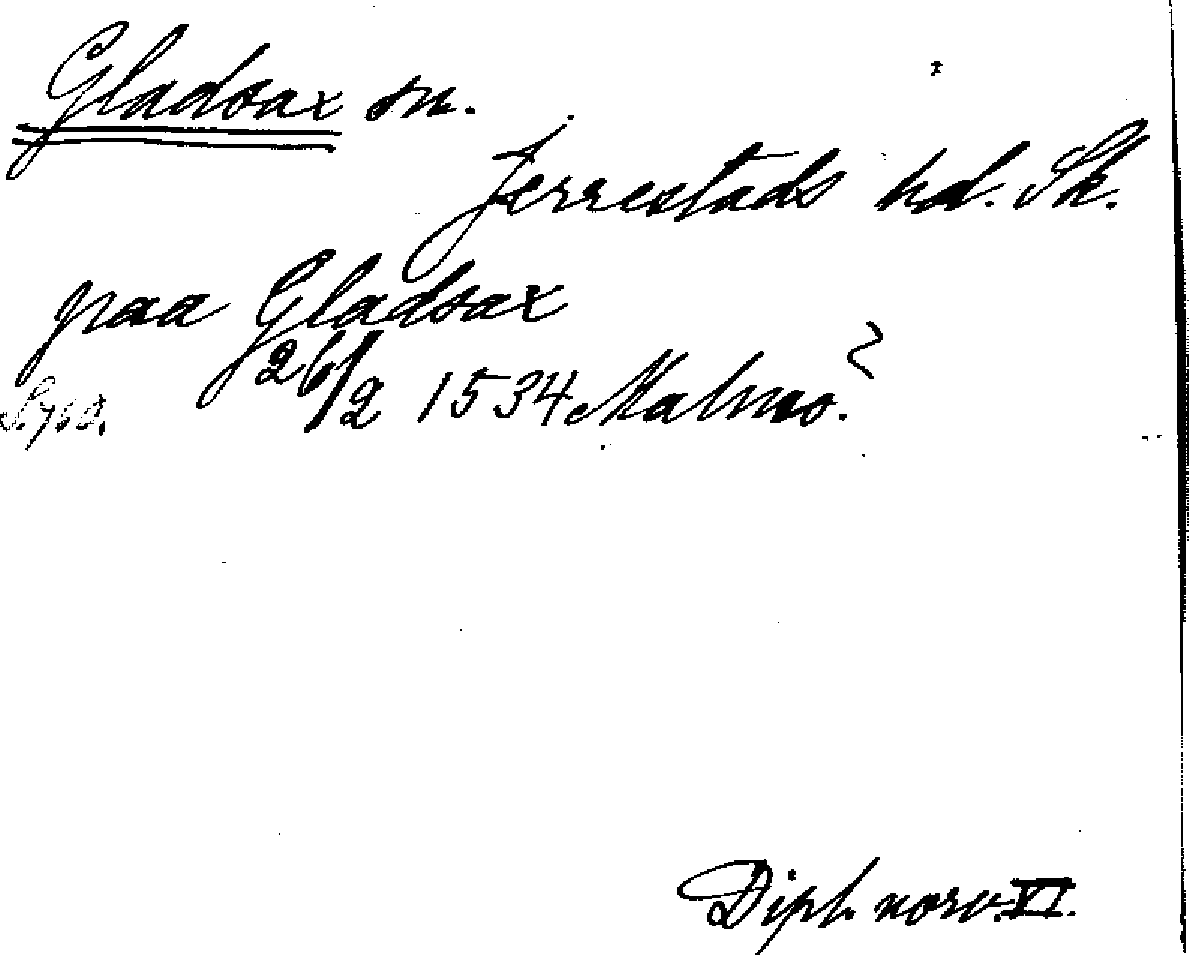 Gladsax sn.
Jerrestads hd. Sk.
paa Gladsax
26/2 1534 Malmö?
Dipl. norv. XI.